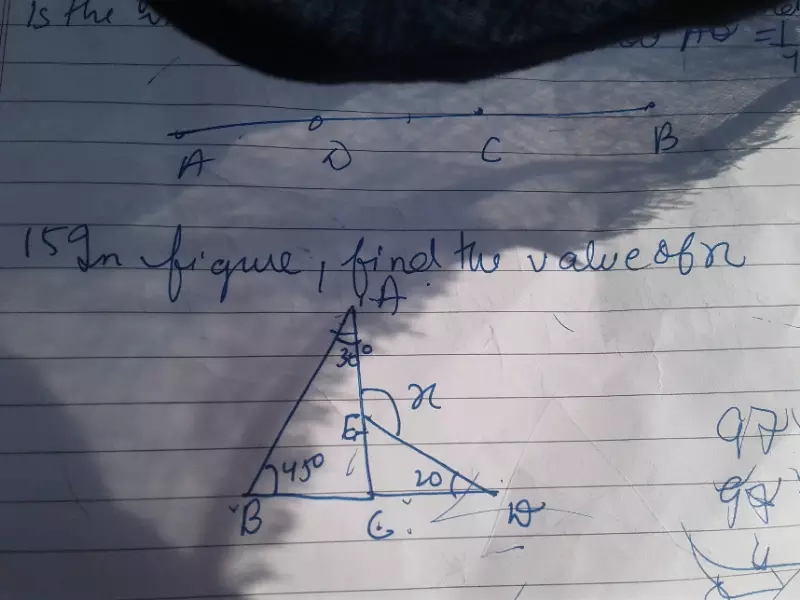 Is the
= 1/4
A D C B
15 In figure, find the value of x
A
30°
x
E
45° 20
B C D